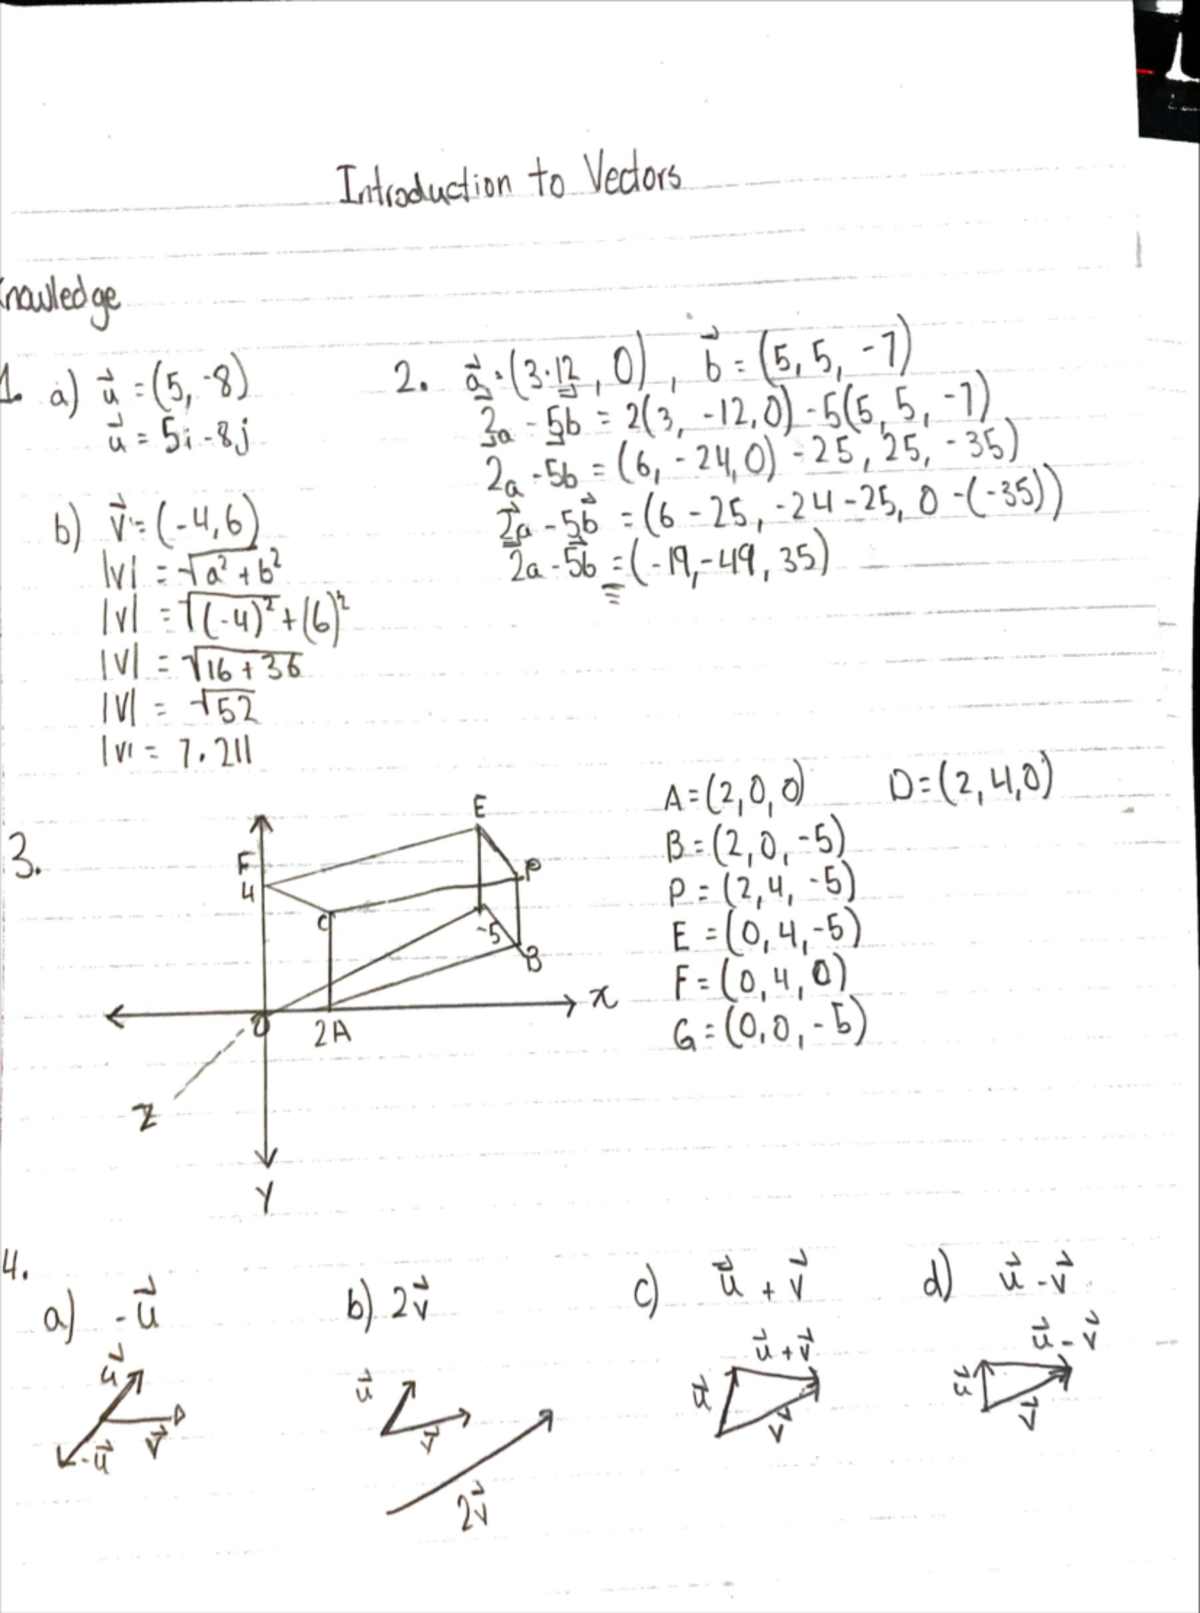 Introduction to Vectors
Knowledge
1. a) u⃗ = (5, -8)
u⃗ = 5i - 8j
b) v⃗ = (-4, 6)
|v| = √a² + b²
|v| = √(-4)² + (6)²
|v| = √16 + 36
|v| = √52
|v| = 7.211
2. a⃗ = (3 · 12, 0), b⃗ = (5, 5, -7)
2a - 5b = 2(3, -12, 0) - 5(5, 5, -7)
2a - 5b = (6, -24, 0) - 25, 25, -35)
2a⃗ - 5b⃗ = (6 - 25, -24 - 25, 0 - (-35))
2a - 5b = (-19, -49, 35)
3.
E
F
4
P
C
-5
B
x
0
2A
Z
Y
A = (2, 0, 0) D = (2, 4, 0)
B = (2, 0, -5)
P = (2, 4, -5)
E = (0, 4, -5)
F = (0, 4, 0)
G = (0, 0, -5)
4.
a) -u⃗
u⃗
-u⃗
v⃗
b) 2v⃗
u⃗
v⃗
2v⃗
c) u⃗ + v⃗
u⃗ + v⃗
u⃗
v⃗
d) u⃗ - v⃗
u⃗ - v⃗
u⃗
v⃗